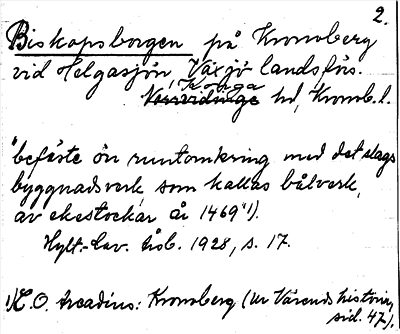 2.
Biskopsborgen på Kronoberg
vid Helgasjön, Växjö landsförs.
Konga
Norrvidinge hd, Kronob. l.
"befäste ön runtomkring med det slags
byggnadsverk, som kallas bålverk,
av ekestockar år 1469" 1).
Hylt.-Cav. årsb. 1928, s. 17.
1) K. O. Arcadius: Kronoberg (Ur Värends historia,
sid. 47).